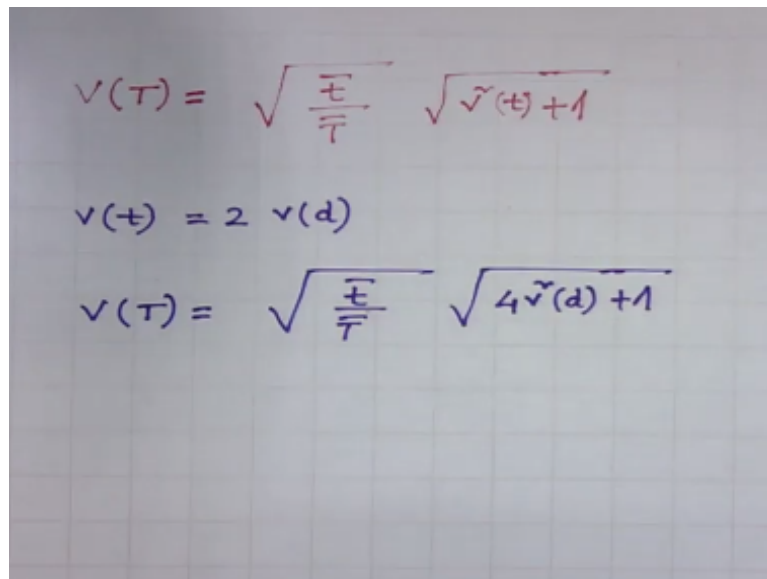 V(T) = √(t̅/T̅) √(ṽ(t) + 1)
v(t) = 2 v(d)
V(T) = √(t̅/T̅) √(4ṽ(d) + 1)